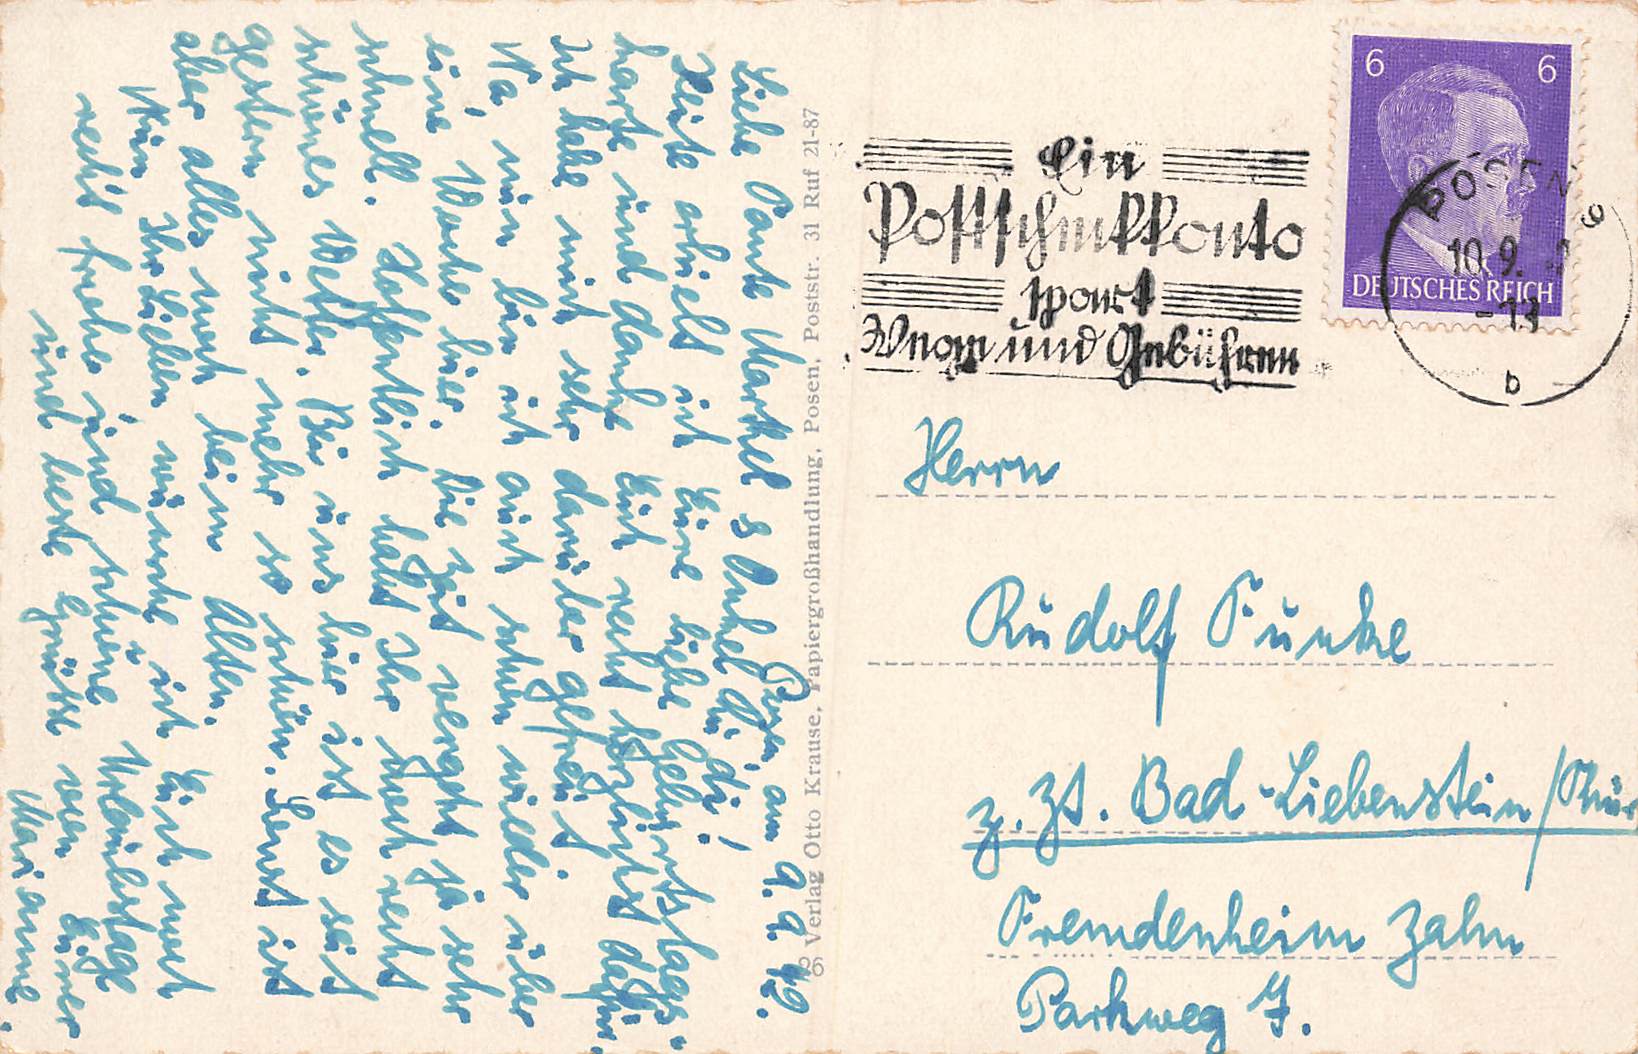 Posen, am 9.9.42.
Liebe Tante Martel & Onkel Rudi!
Heute erhielt ich Eure liebe Geburtstags-
karte und danke Euch recht herzlichst dafür.
Ich habe mich sehr darüber gefreut.
Na, nun bin ich auch schon wieder über
eine Woche hier. Die Zeit vergeht ja sehr
schnell. Hoffentlich habt Ihr dort recht
schönes Wetter. Bei uns hier ist es seit
gestern nicht mehr so schön. Sonst ist
aber alles noch beim Alten.
Nun Ihr Lieben wünsche ich Euch noch
recht frohe und schöne Urlaubstage
und beste Grüße von Eurer
Marianne.
Verlag Otto Krause, Papiergroßhandlung, Posen, Poststr. 31 Ruf 21-87
6 6
DEUTSCHES REICH
POSEN
10.9.
b
Ein
Postscheckkonto
spart
Wege und Gebühren
Herrn
Rudolf Funke
z. Zt. Bad-Liebenstein /Thür
Fremdenheim Zahn
Parkweg 7.